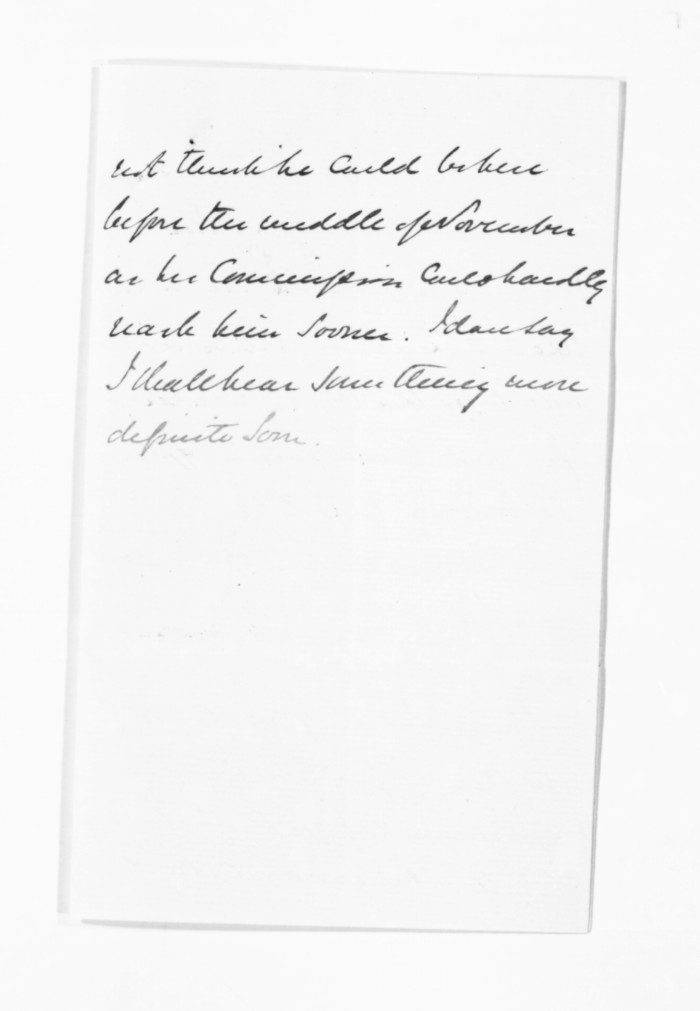 not think he could be here
before the middle of November
as his Commission could hardly
reach him sooner. I dare say
I shall hear something more
definite soon.